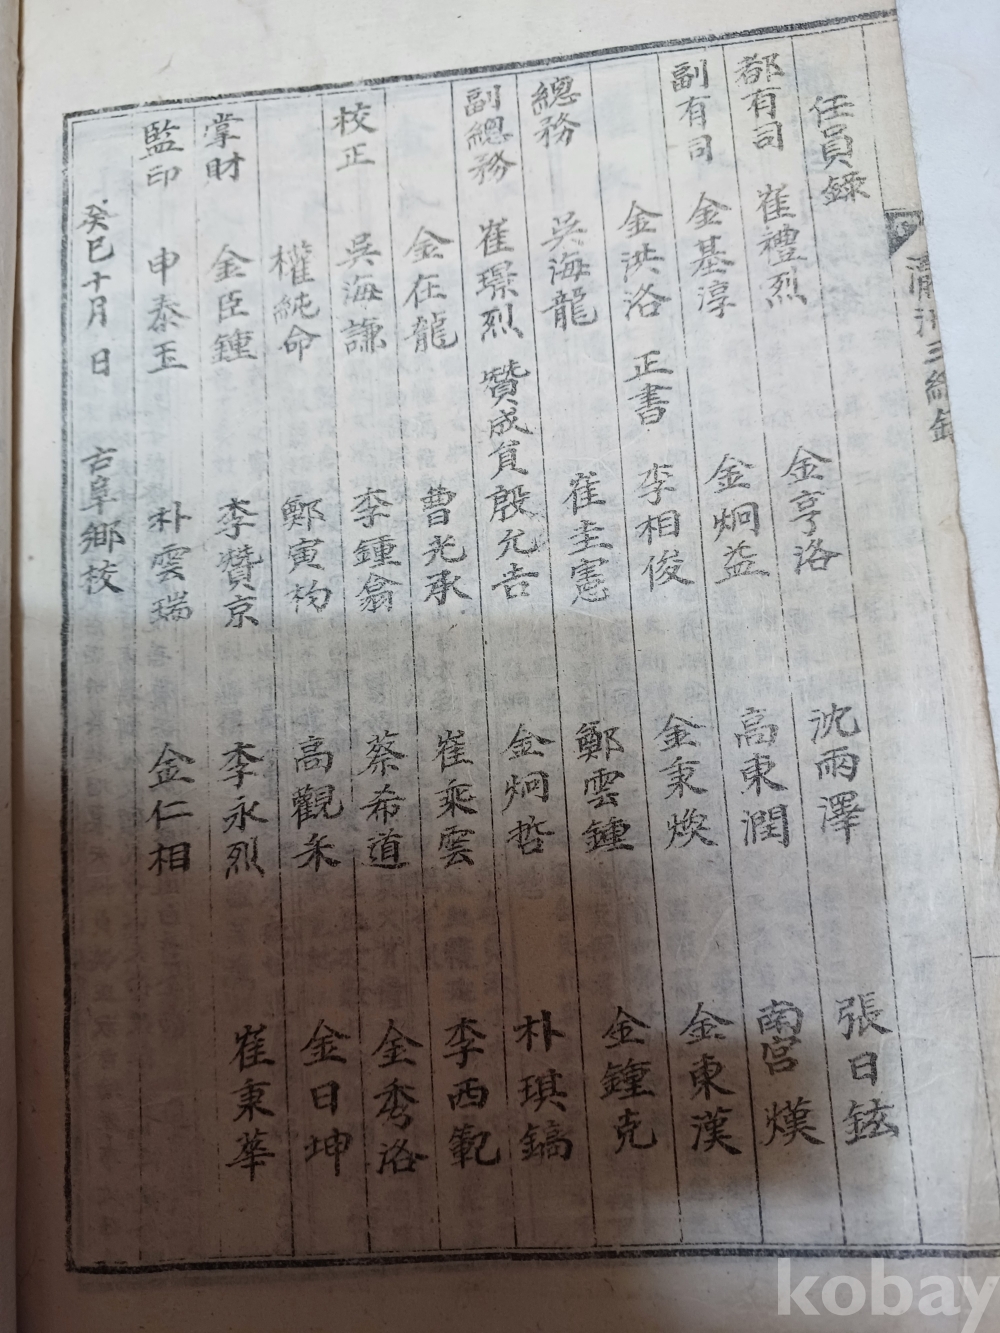 任員錄
都有司 崔禮烈 金亨洛 沈雨澤 張日鉉
副有司 金基淳 金炯益 高東潤 南宮熯
金洪洛 正書 李相俊 金秉煥 金東漢
總務 吳海龍 崔圭憲 鄭雲鍾 金鍾克
副總務 崔璟烈 贊成員 殷允吉 金炯哲 朴琪鎬
金在龍 曹光承 崔乘雲 李西範
校正 吳海謙 李鍾翕 蔡希道 金秀洛
權純命 鄭寅杓 高觀禾 金日坤
掌財 金臣鍾 李贊京 李永烈 崔東華
監印 申泰玉 朴雲瑞 金仁相
癸巳十月 日 古阜鄉校
kobay